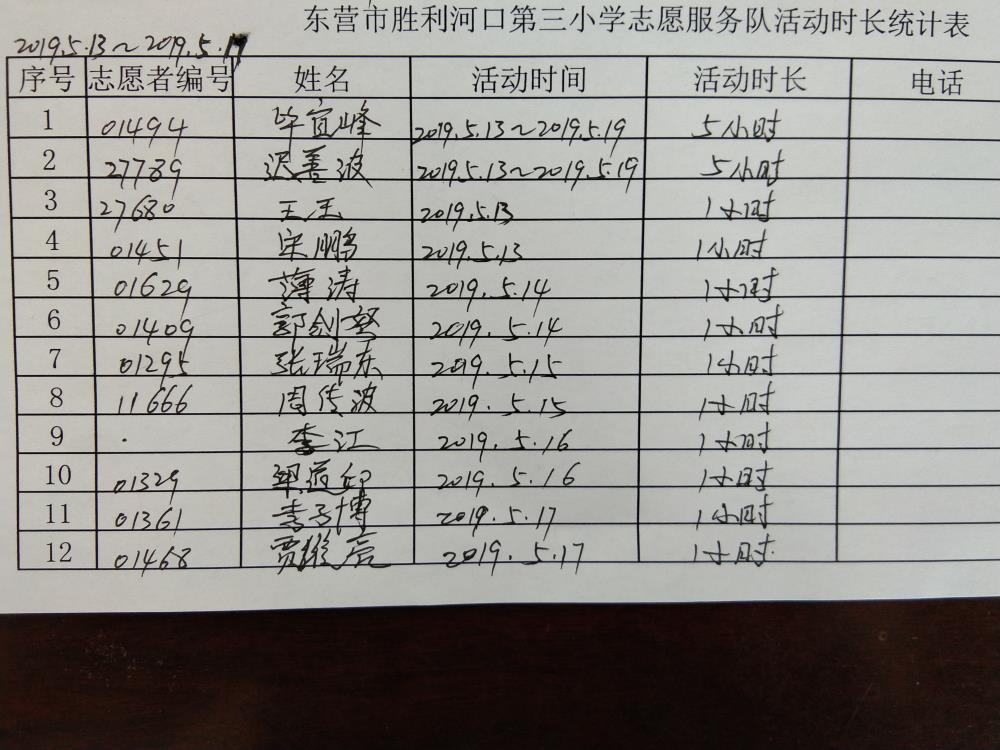 东营市胜利河口第三小学志愿服务队活动时长统计表
2019.5.13～2019.5.17
序号 志愿者编号 姓名 活动时间 活动时长 电话
1 01494 毕宜峰 2019.5.13～2019.5.19 5小时
2 27789 迟善波 2019.5.13～2019.5.19 5小时
3 27680 王玉 2019.5.13 1小时
4 01451 宋鹏 2019.5.13 1小时
5 01629 薄涛 2019.5.14 1小时
6 01409 郭剑 2019.5.14 1小时
7 01295 张瑞东 2019.5.15 1小时
8 11666 周传波 2019.5.15 1小时
9 李江 2019.5.16 1小时
10 01329 2019.5.16 1小时
11 01361 李子博 2019.5.17 1小时
12 01468 贾 2019.5.17 1小时